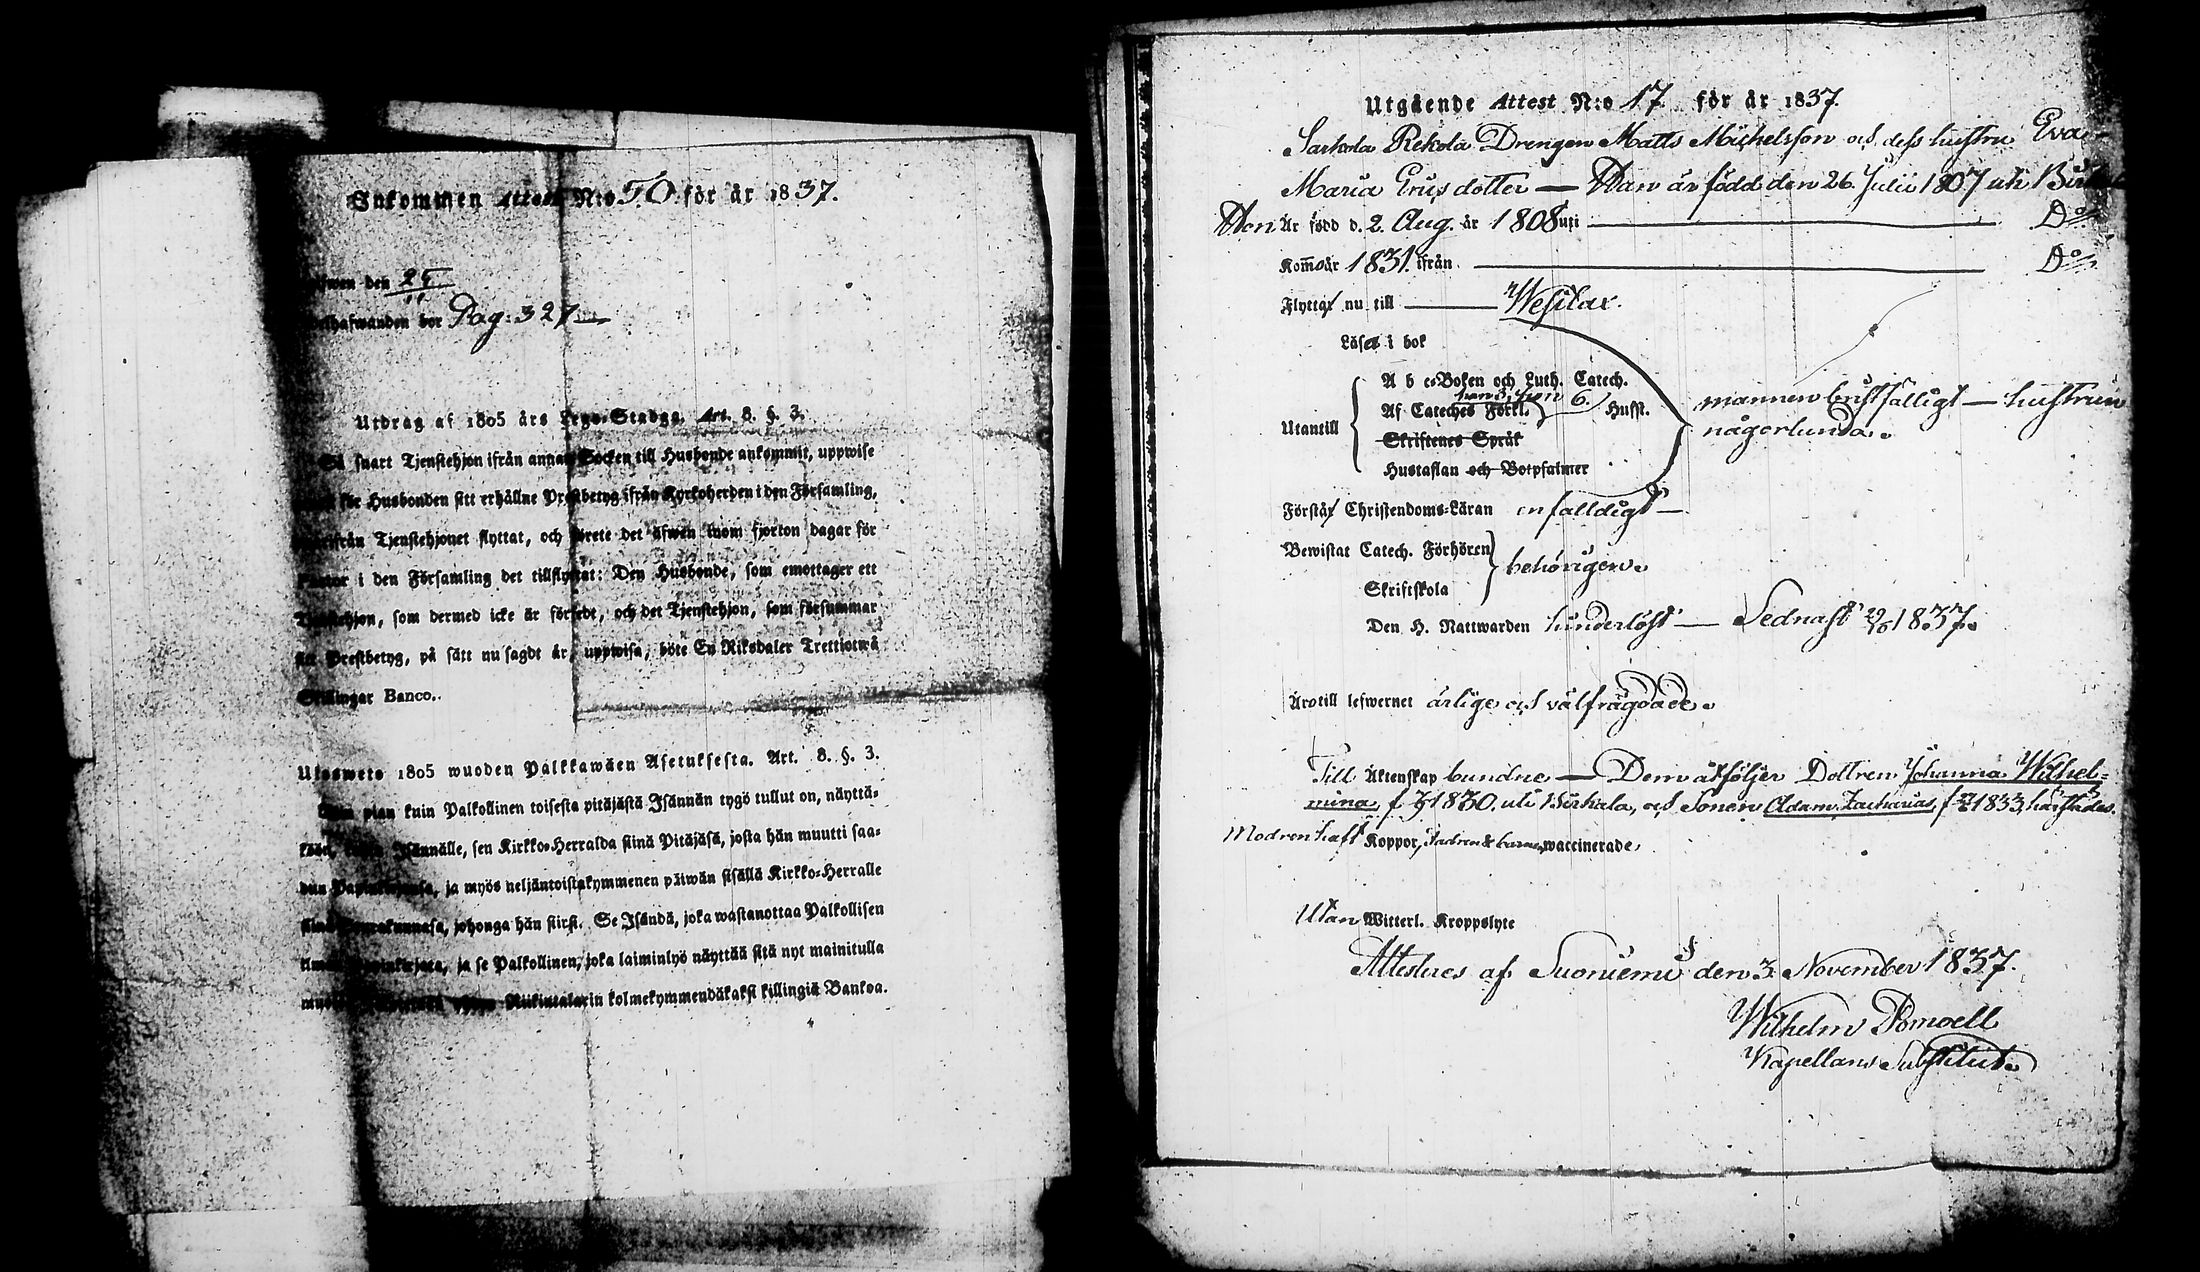 Inkommen Attest N:o 50 för år 1837.
den 25
11
Pag: 327
Utdrag af 1805 års Lego-Stadga. Art. 8. §. 3.
Så snart Tjenstehjon ifrån annan Socken till Husbonde ankommit, uppwise
för Husbonden sitt erhållne Prestbetyg ifrån Kyrkoherden i den Församling,
Tjenstehjonet flyttat, och förete det äfwen inom fjorton dagar för
Pastor i den Församling det tillflyttat: Den Husbonde, som emottager ett
Tjenstehjon, som dermed icke är försedt, och det Tjenstehjon, som försummar
Prestbetyg, på sätt nu sagdt är, uppwisa, böte En Riksdaler Trettiotwå
Skillingar Banco.
Uloswete 1805 wuoden Palkkawäen Asetuksesta. Art. 8. §. 3.
pian kuin Palkollinen toisesta pitäjästä Isännän tygö tullut on, näyttä-
Isännälle, sen Kirkko-Herralda siinä Pitäjäsä, josta hän muutti saa-
dun ja myös neljäntoistakymmenen päiwän sisällä Kirkko-Herralle
johonga hän siirsi. Se Isändä, joka wastanottaa Palkollisen
ilman ja se Palkollinen, joka laiminlyö näyttää sitä nyt mainitulla
Riikintalarin kolmekymmendäkaksi killingiä Bankoa.
Utgående Attest N:o 17. för år 1837.
Sarkola Rekola Drengen Matts Michelsson och dess hustru Eva
Maria Ericsdotter — Han är född den 26. Julii 1807 uti
Hon Är född d. 2. Aug. år 1808 uti — Do
Kom år 1831. ifrån — Do
Flytta nu till — Wesilax.
Läsa i bok
A b c-Boken och Luth. Catech.
han 3, hon 6.
Utantill Af Cateches Förkl. Hufst.
Skriftenes Språk
Hustaflan och Botpsalmer
mannen bristfälligt — hustrun
någorlunda.
Förstå Christendoms-Läran enfalldigt —
Bewistat Catech. Förhören
behörigen.
Skriftskola
Den H. Nattwarden hinderlöst — Sednast 1837.
Äro till lefwernet ärlige och välfrägdade.
Till Äktenskap bundne — Dem åtföljer Dottren Johanna Wilhel-
mina, f 1830. uti Birkala, och Sonen Adam Zacharias, f 1833, härstädes.
Modren haft Koppor, Fadren & barnen waccinerade.
Utan Witterl. Kroppslyte
Attesteres af Suoniemi den 3 November 1837.
Wilhelm Pomoell
Kapellans Substitut.